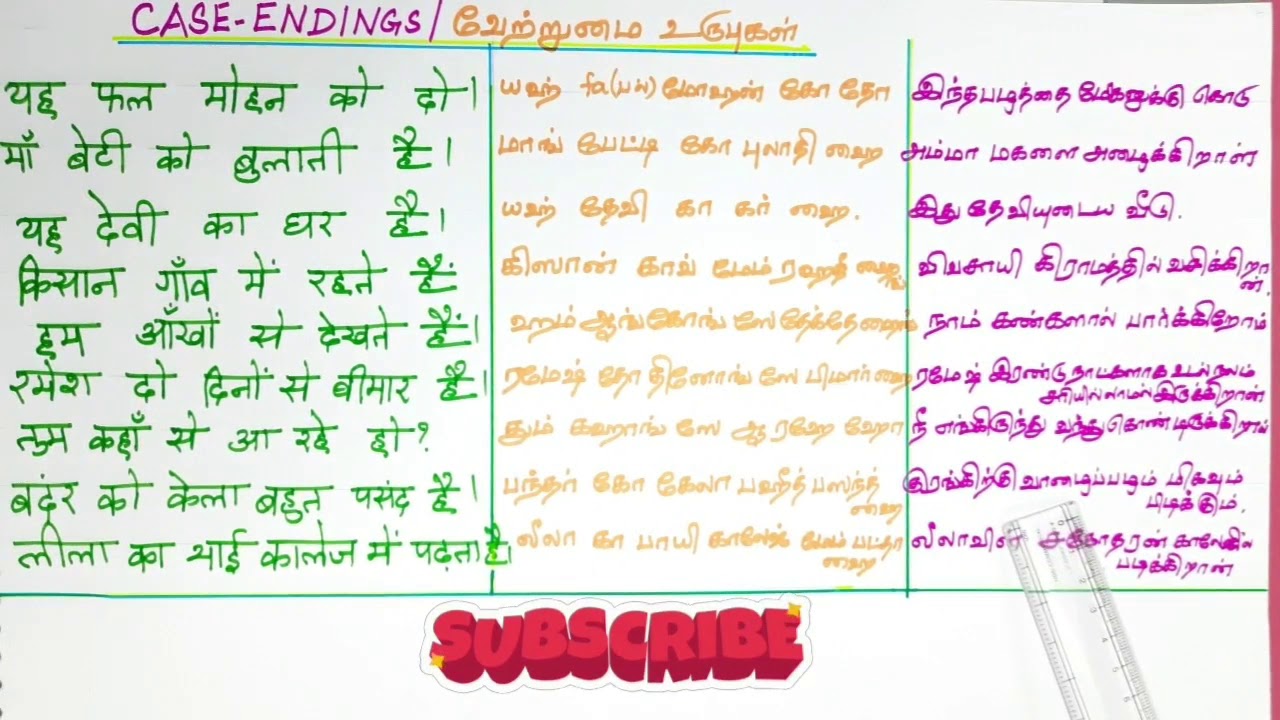 CASE-ENDINGS/வேற்றுமை உருபுகள்
यह फल मोहन को दो। யஹ் fa(பல்) மோஹன் கோ தோ இந்த பழத்தை மோகனுக்கு கொடு
माँ बेटी को बुलाती है। மாங் பேட்டி கோ புலாதி ஹை அம்மா மகளை அழைக்கிறாள்
यह देवी का घर है। யஹ் தேவி கா கர் ஹை. இது தேவியுடைய வீடு.
किसान गाँव में रहते हैं கிஸான் காவ் மேம் ரஹதே ஹை விவசாயி கிராமத்தில் வசிக்கிறான்.
हम आँखों से देखते हैं। ஹம் ஆங்கோங் ஸே தேக்தே ஹைம் நாம் கண்களால் பார்க்கிறோம்
रमेश दो दिनों से बीमार है। ரமேஷ் தோ தினோங் ஸே பிமார் ஹை ரமேஷ் இரண்டு நாட்களாக உடல் நலம்
சரியில்லாமல் இருக்கிறான்
तुम कहाँ से आ रहे हो? தும் கஹாங் ஸே ஆ ரஹே ஹோ நீ எங்கிருந்து வந்து கொண்டிருக்கிறாய்
बदंर को केला बहुत पसंद है। பந்தர் கோ கேலா பஹீத் பஸந்த் ஹை குரங்கிற்கு வாழைப்பழம் மிகவும்
பிடிக்கும்.
लीला का भाई कालेज में पढ़ता है। லீலா கா பாயி காலேஜ் மேம் படதா ஹை லீலாவின் சகோதரன் காலேஜில்
படிக்கிறான்
SUBSCRIBE